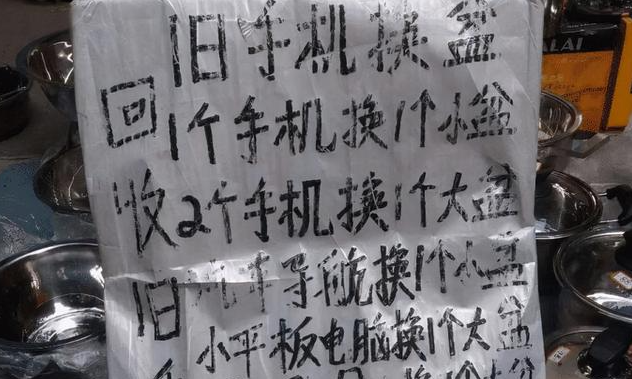 旧手机换盆
回收旧
1个手机换1个小盆
2个手机换1个大盆
汽车导航换1个小盆
小平板电脑换1个大盆
换1个大盆
ALAI